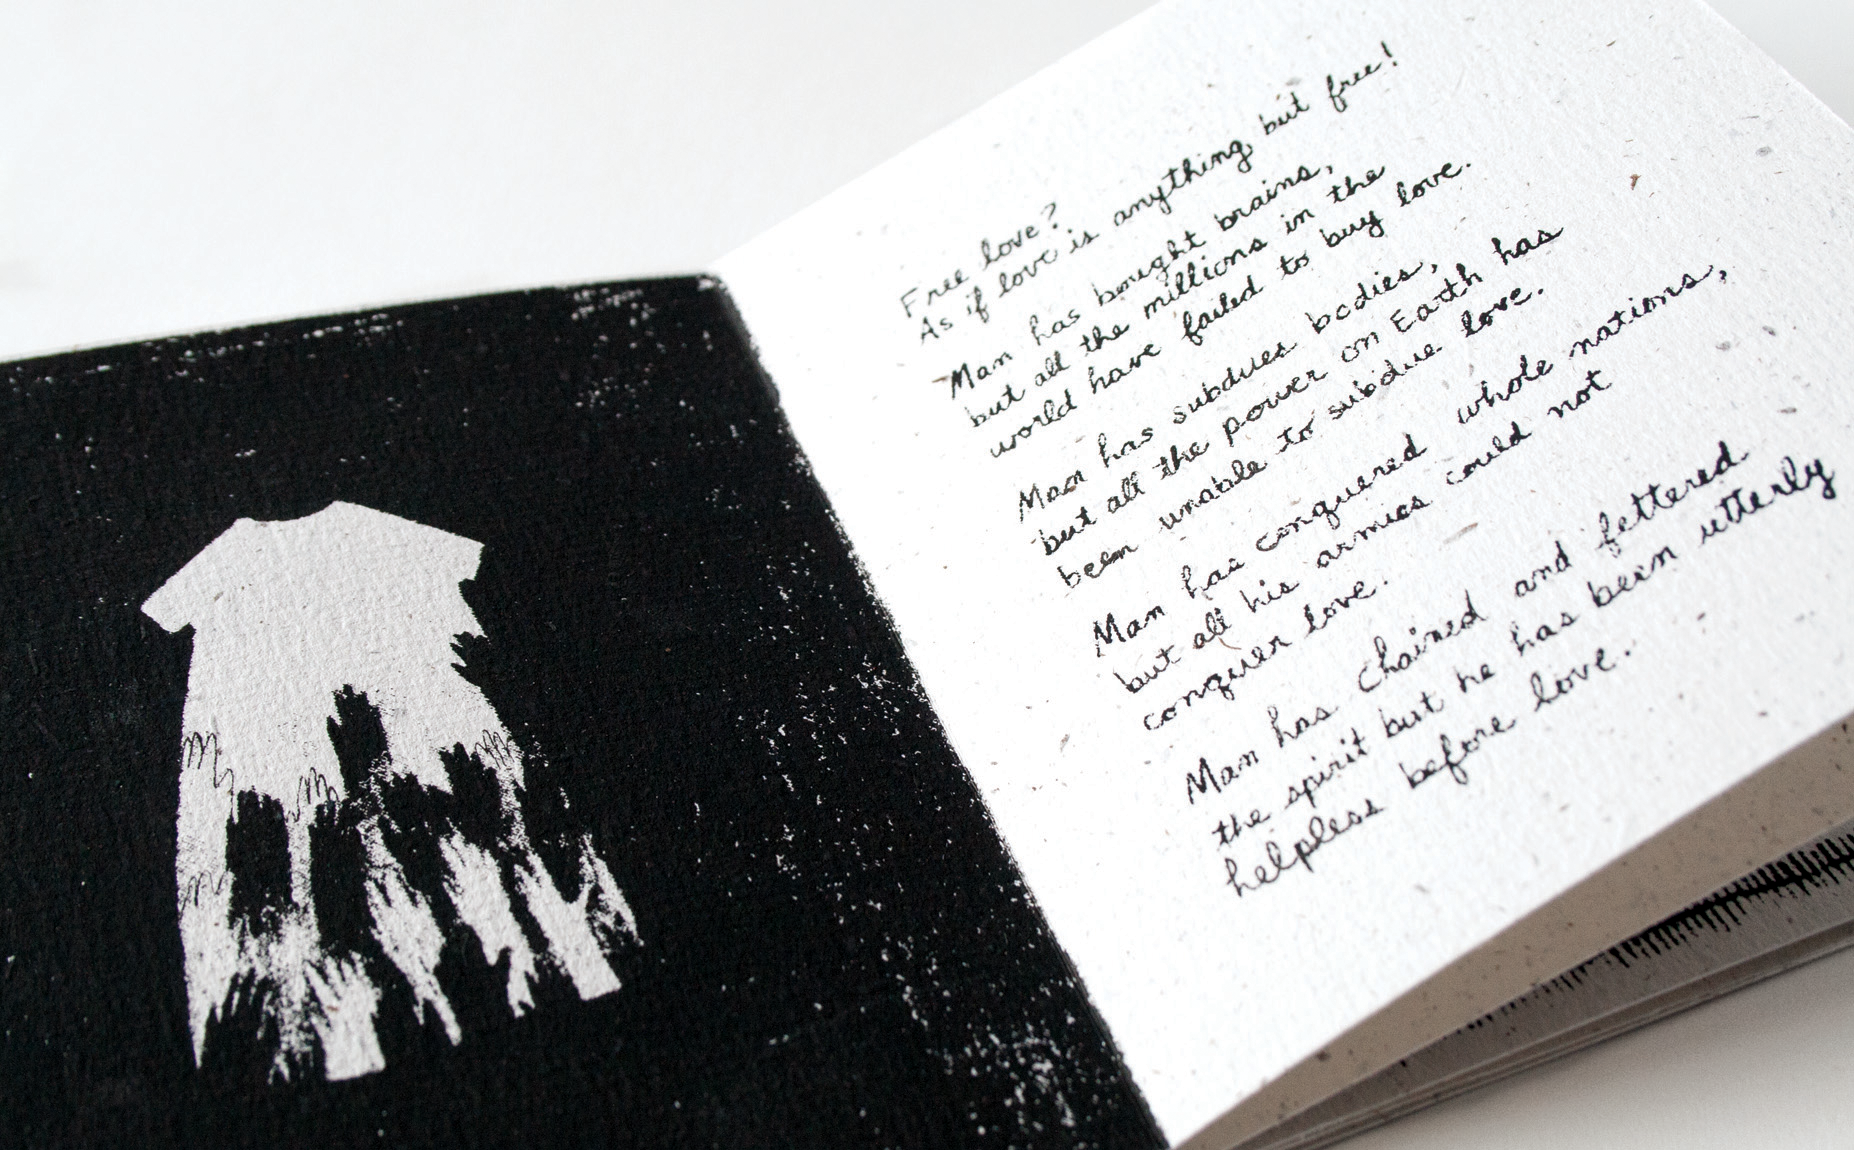 Free love?
As if love is anything but free!
Man has bought brains,
but all the millions in the
world have failed to buy love.
Man has subdues bodies,
but all the power on Earth has
been unable to subdue love.
Man has conquered whole nations,
but all his armies could not
conquer love.
Man has chained and fettered
the spirit but he has been utterly
helpless before love.